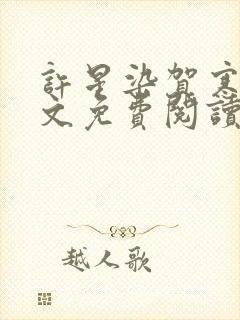 許星染賀寒
文免費閱讀
越人歌